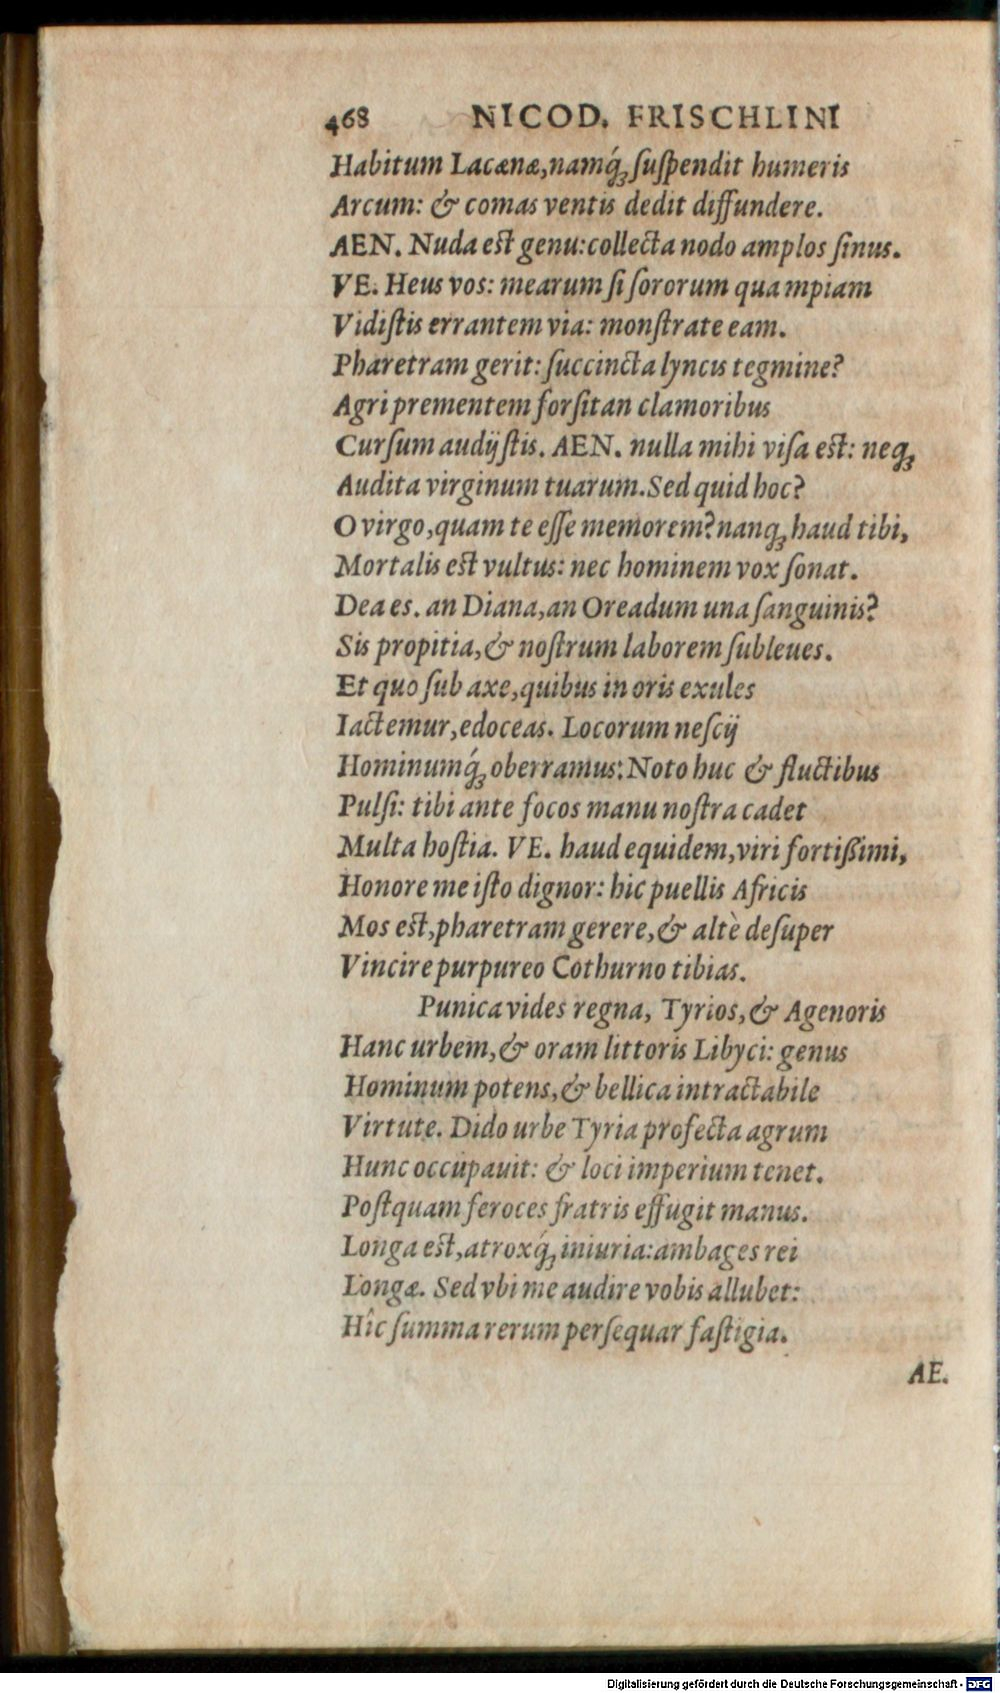 468 NICOD. FRISCHLINI
Habitum Lacænæ,namq́ꝫ ſuſpendit humeris
Arcum: & comas ventis dedit diffundere.
AEN. Nuda est genu:collecta nodo amplos ſinus.
VE. Heus vos: mearum ſi ſororum quampiam
Vidiſtis errantem via: monſtrate eam.
Pharetram gerit: ſuccincta lyncis tegmine?
Agri prementem forſitan clamoribus
Curſum audijſtis. AEN. nulla mihi viſa est: neqꝫ
Audita virginum tuarum.Sed quid hoc?
O virgo,quam te eſſe memorem?nanqꝫ haud tibi,
Mortalis est vultus: nec hominem vox ſonat.
Dea es. an Diana,an Oreadum una ſanguinis?
Sis propitia,& noſtrum laborem ſubleues.
Et quo ſub axe,quibus in oris exules
Iactemur,edoceas. Locorum neſcij
Hominumq́ꝫ oberramus: Noto huc & fluctibus
Pulſi: tibi ante focos manu noſtra cadet
Multa hoſtia. VE. haud equidem,viri fortißimi,
Honore me iſto dignor: hic puellis Africis
Mos est,pharetram gerere,& altè deſuper
Vincire purpureo Cothurno tibias.
Punica vides regna, Tyrios,& Agenoris
Hanc urbem,& oram littoris Libyci: genus
Hominum potens,& bellica intractabile
Virtute. Dido urbe Tyria profecta agrum
Hunc occupauit: & loci imperium tenet.
Poſtquam feroces fratris effugit manus.
Longa est,atroxq́ꝫ iniuria:ambages rei
Longæ. Sed vbi me audire vobis allubet:
Hîc ſumma rerum perſequar faſtigia.
AE.
Digitalisierung gefördert durch die Deutsche Forschungsgemeinschaft - DFG